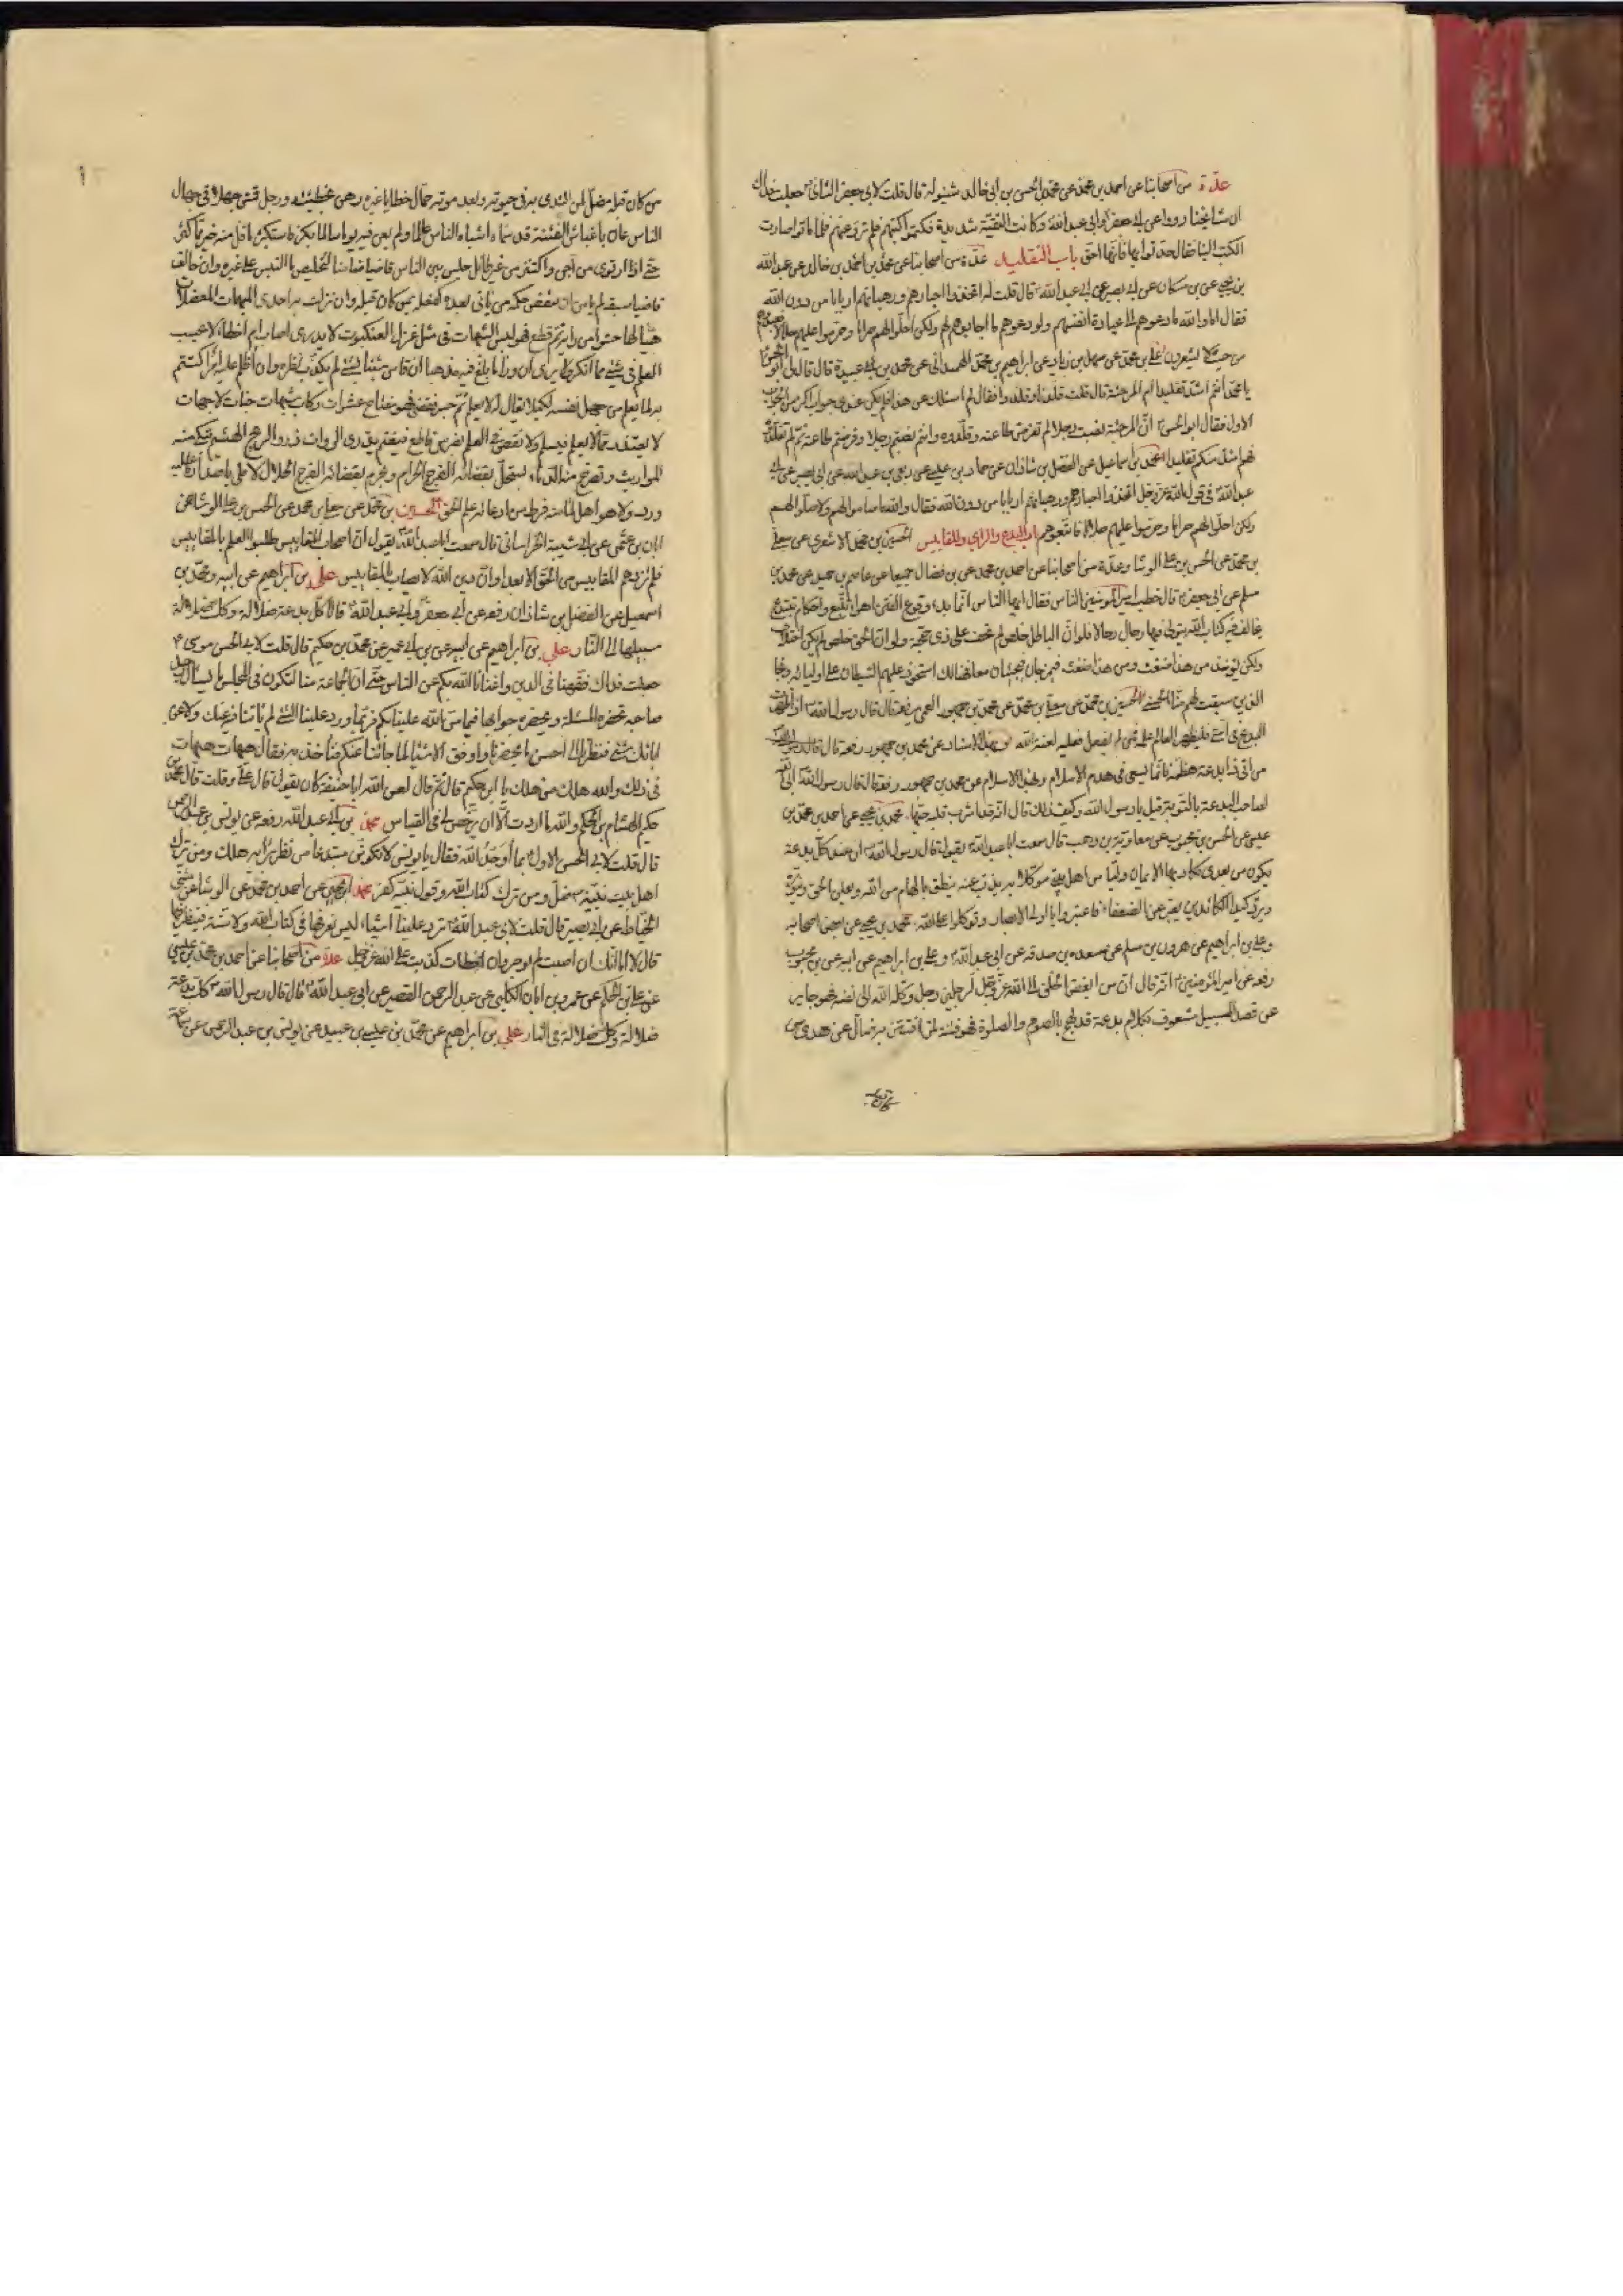 عدّة من اصحابنا عن احمد بن محمد عن محمد بن الحسن بن ابى خالد شنبولة قال قلت لابى جعفر الثانى جعلت فداك
ان مشايخنا رووا عن ابى جعفر وابى عبد الله وكانت التقيّة شديدة فكتموا كتبهم فلم ترو عنهم فلما ماتوا صارت
الكتب الينا فقال حدثوا بها فانها حق باب التقليد عدّة من اصحابنا عن احمد بن محمد بن خالد عن عبد الله
بن يحيى عن بن مسكان عن ابى بصير عن ابى عبد الله قال قلت له اتخذوا احبارهم ورهبانهم اربابا من دون الله
فقال اما والله ما دعوهم الى عبادة انفسهم ولو دعوهم ما اجابوهم ولكن احلّوا لهم حراما وحرموا عليهم حلالا فعبدوهم
من حيث لا يشعرون على بن محمد عن سهل بن زياد عن ابراهيم بن محمد الهمدانى عن محمد بن عبيدة قال قال لى ابو الحسن
يا محمد انتم اشد تقليدا ام المرجئة قال قلت قلدنا وقلدوا فقال لم اسئلك عن هذا فلم يكن عندى جواب اكثر من الجواب
الاول فقال ابو الحسن ان المرجئة نصبت رجلا لم تفرض طاعته وقلّدوه وانتم نصبتم رجلا وفرضتم طاعته ثم لم تقلدوه
فهم اشد منكم تقليدا محمد بن اسماعيل عن الفضل بن شاذان عن حماد بن عيسى عن ربعى بن عبد الله عن ابى بصير عن ابى
عبد الله فى قول الله عز وجل اتخذوا احبارهم ورهبانهم اربابا من دون الله فقال والله ما صاموا لهم ولا صلّوا لهم
ولكن احلّوا لهم حراما وحرموا عليهم حلالا فاتبعوهم باب البدع والراى والمقاييس الحسين بن محمد الاشعرى عن معلى
بن محمد عن الحسن بن على الوشا وعدّة من اصحابنا عن احمد بن محمد عن بن فضال جميعا عن عاصم بن حميد عن محمد بن
مسلم عن ابى جعفر قال خطب امير المؤمنين الناس فقال ايها الناس انما بدء وقوع الفتن اهواء تتبع واحكام تبتدع
يخالف فيها كتاب الله يتولى فيها رجال رجالا فلو انّ الباطل خلص لم يخف على ذى حجى ولو ان الحق خلص لم يكن اختلاف
ولكن يؤخذ من هذا ضغث ومن هذا ضغث فيمزجان فيجيئان معا فهنالك استحوذ عليهم الشيطان على اوليائه ونجا
الذين سبقت لهم منا الحسنى الحسين بن محمد عن معلى بن محمد عن محمد بن جمهور العمى يرفعه قال قال رسول الله اذا ظهرت
البدع فى امتى فليظهر العالم علمه فمن لم يفعل فعليه لعنة الله وبهذا الاسناد عن محمد بن جمهور رفعه قال قال رسول الله
من اتى ذا بدعة فعظمه فانما يسعى فى هدم الاسلام وبهذا الاسناد عن محمد بن جمهور رفعه قال قال رسول الله ابى الله
لصاحب البدعة بالتوبة قيل يا رسول الله وكيف ذلك قال انه قد اشرب قلبه حبّها محمد بن يحيى عن احمد بن محمد بن
عيسى عن الحسن بن محبوب عن معاوية بن وهب قال سمعت ابا عبد الله يقول قال رسول الله ان عند كل بدعة
يكون من بعدى يكاد بها الايمان وليّا من اهل بيتى موكلا به يذب عنه ينطق بالهام من الله ويعلن الحق وينوّره
ويرد كيد الكائدين يعبر عن الضعفاء فاعتبروا يا اولى الابصار وتوكلوا على الله محمد بن يحيى عن بعض اصحابه
وعلى بن ابراهيم عن هرون بن مسلم عن مسعدة بن صدقة عن ابى عبد الله وعلى بن ابراهيم عن ابيه عن بن محبوب
رفعه عن امير المؤمنين انه قال ان من ابغض الخلق الى الله عز وجل لرجلين رجل وكله الله الى نفسه فهو جاير
عن قصد السبيل مشعوف بكلام بدعة قد لهج بالصوم والصلوة فهو فتنة لمن افتتن به ضال عن هدى من
من كان قبله مضل لمن اقتدى به فى حيوته وبعد موته حمّال خطايا غيره رهن بخطيئته ورجل قمش جهلا فى جهال
الناس عان باغباش الفتنة قد سماه اشباه الناس عالما ولم يغن فيه يوما سالما بكر فاستكثر ما قل منه خير مما كثر
حتى اذا ارتوى من آجن واكتنز من غير طائل جلس بين الناس قاضيا ضامنا لتخليص ما التبس على غيره وان خالف
قاضيا سبقه لم يامن ان ينقض حكمه من ياتى بعده كفعله بمن كان قبله وان نزلت به احدى المبهمات المعضلات
هيّا لها حشوا من رايه ثم قطع فهو من لبس الشبهات فى مثل غزل العنكبوت لا يدرى اصاب ام اخطا لا يحسب
العلم فى شئ مما انكر ولا يرى ان وراء ما بلغ فيه مذهبا ان قاس شيئا بشئ لم يكذب نظره وان اظلم عليه امر اكتتم
به لما يعلم من جهل نفسه لكيلا يقال له لا يعلم ثم جسر فقضى فهو مفتاح عشوات ركاب شبهات خباط جهالات
لا يعتذر مما لا يعلم فيسلم ولا يعض فى العلم بضرس قاطع فيغنم يذرى الروايات ذرو الريح الهشيم تبكى منه
المواريث وتصرخ منه الدماء يستحلّ بقضائه الفرج الحرام ويحرم بقضائه الفرج الحلال لا ملى باصدار ما عليه
ورد ولا هو اهل لما منه فرط من ادعائه علم الحق الحسين بن محمد عن معلى بن محمد عن الحسن بن على الوشا عن
ابان بن عثمن عن ابى شيبة الخراسانى قال سمعت ابا عبد الله يقول ان اصحاب المقاييس طلبوا العلم بالمقاييس
فلم تزدهم المقاييس من الحق الا بعدا وان دين الله لا يصاب بالمقاييس على بن ابراهيم عن ابيه ومحمد بن
اسمعيل عن الفضل بن شاذان رفعه عن ابى جعفر وابى عبد الله قالا كل بدعة ضلالة وكل ضلالة
سبيلها الى النار على بن ابراهيم عن ابيه عن بن ابى عمير عن محمد بن حكيم قال قلت لابى الحسن موسى
جعلت فداك فقهنا فى الدين واغنانا الله بكم عن الناس حتى ان الجماعة منا لتكون فى المجلس ما يسأل رجل
صاحبه تحضره المسئلة ويحضره جوابها فيما من الله علينا بكم فربما ورد علينا الشئ لم ياتنا فيه عنك ولا عن
ابائك شئ فنظرنا الى احسن ما يحضرنا واوفق الاشياء لما جائنا عنكم فناخذ به فقال هيهات هيهات
فى ذلك والله هلك من هلك يا ابن حكيم قال ثم قال لعن الله ابا حنيفة كان يقول قال على وقلت قال محمد بن
حكيم لهشام بن الحكم والله ما اردت الا ان يرخص لى فى القياس محمد بن ابى عبد الله رفعه عن يونس بن عبد الرحمن
قال قلت لابى الحسن الاول بما اوحد الله فقال يا يونس لا تكونن مبتدعا من نظر برايه هلك ومن ترك
اهل بيت نبيه ضل ومن ترك كتاب الله وقول نبيه كفر محمد بن يحيى عن احمد بن محمد عن الوشا عن مثنى
الحناط عن ابى بصير قال قلت لابى عبد الله ترد علينا اشياء ليس نعرفها فى كتاب الله ولا سنة فننظر فيها
قال لا اما انك ان اصبت لم توجر وان اخطات كذبت على الله عز وجل عدة من اصحابنا عن احمد بن محمد بن عيسى
عن على بن الحكم عن عمر بن ابان الكلبى عن عبد الرحيم القصير عن ابى عبد الله قال قال رسول الله كل بدعة
ضلالة وكل ضلالة فى النار على بن ابراهيم عن محمد بن عيسى بن عبيد عن يونس بن عبد الرحمن عن سماعة